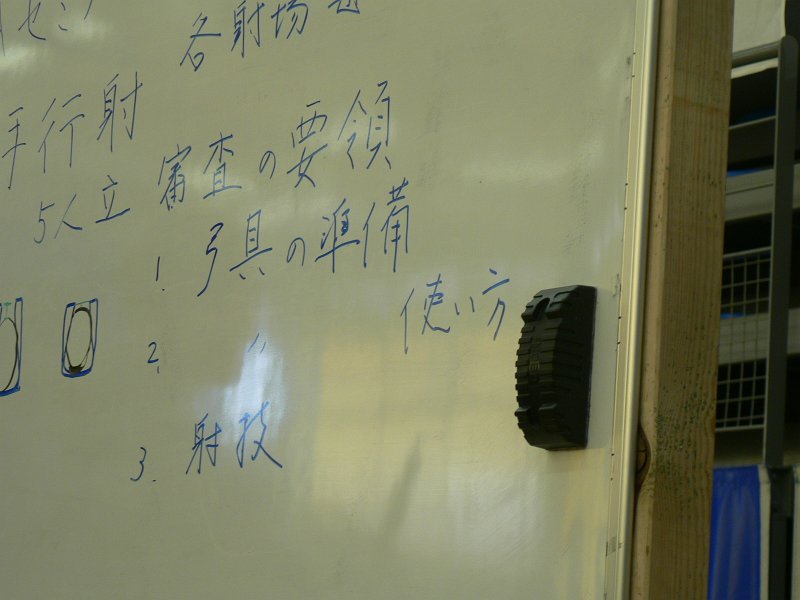 各射場
手行射
5人立 審査の要領
1. 弓具の準備
使い方
2. 〃
3. 射技